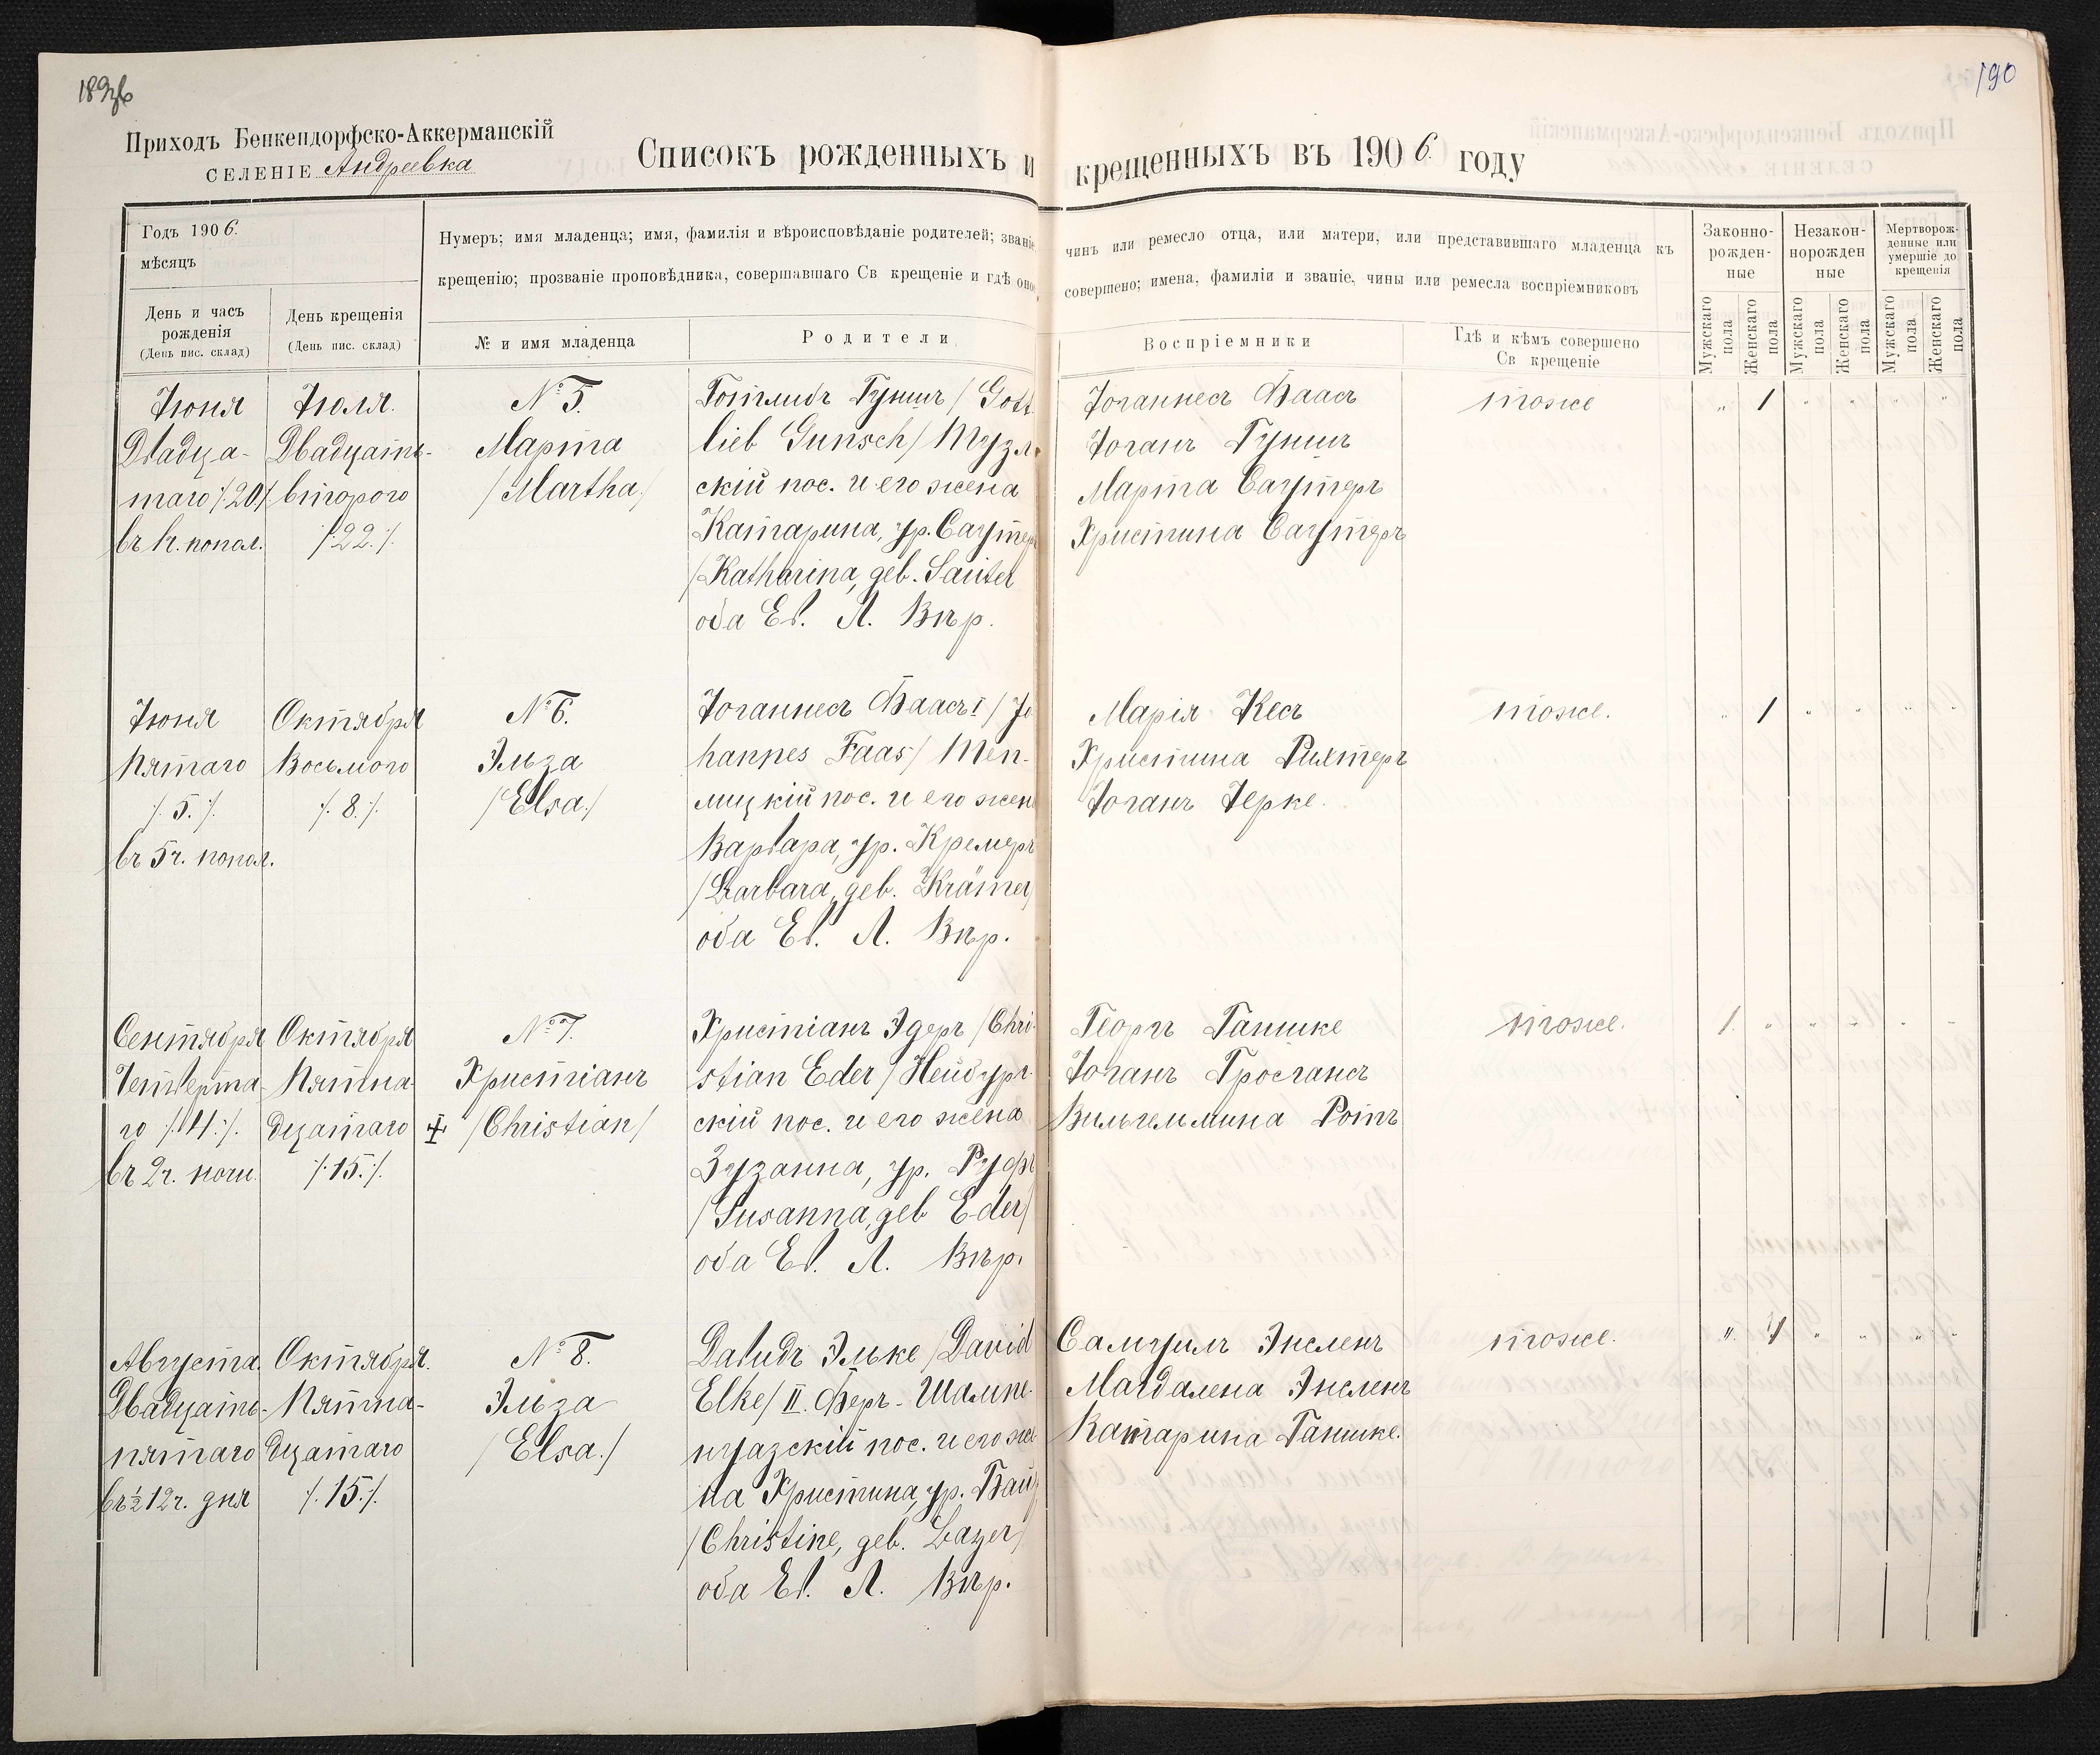 190
Приходъ Бенкендорфско-Аккерманскій
СЕЛЕНІЕ Андреевка
Списокъ рожденныхъ и крещенныхъ въ 1906. году
Годъ 1906.
мѣсяцъ
День и часъ
рожденія
(День пис. склад)
День крещенія
(День пис. склад)
Нумеръ; имя младенца; имя, фамилія и вѣроисповѣданіе родителей; званіе
чинъ или ремесло отца, или матери, или представившаго младенца къ
крещенію; прозваніе проповѣдника, совершавшаго Св крещеніе и гдѣ оно
совершено; имена, фамиліи и званіе, чины или ремесла воспріемниковъ
№ и имя младенца
Родители
Воспріемники
Гдѣ и кѣмъ совершено
Св крещеніе
Законно-
рожден-
ные
Незакон-
норожден
ные
Мертворож-
денные или
умершіе до
крещенія
Мужскаго пола
Женскаго пола
Мужскаго пола
Женскаго пола
Мужскаго пола
Женскаго пола
Іюня
Двадца-
таго /:20:/
въ h. попол.
Іюля.
Двадцать-
второго
/:22.:/
№ 5.
Марта
/Martha/
Готлибъ Гуншъ /Gott
lieb Gunsch/ Тузл
скій пос. и его жена
Катарина, ур. Саутеръ
/Katharina, geb. Sauter
оба Ев. Л. Вѣр.
Іоганнесъ Фаасъ
Іоганъ Гуншъ
Марта Саутеръ
Христина Саутеръ
тоже
" 1 " " " "
Іюня
Пятаго
/:5.:/
въ 5 ч. попол.
Октября
Восьмого
/:8.:/
№ 6.
Эльза
/Elsa./
Іоганнесъ Фаасъ I /Jo
hannes Faas/ Теп-
лицкій пос. и его жен
Варвара, ур. Кремеръ
/Barbara, geb. Krämer/
оба Ев. Л. Вѣр.
Марія Кесъ
Христина Рихтеръ
Іоганъ Герке.
тоже.
" 1 " " " "
Сентября
Четверта-
го /:4:/.
въ 2 ч. ночи.
Октября
Пятна-
дцатаго
/:15.:/
№ 7.
Христіанъ
/Christian/
Христіанъ Эдеръ /Chri-
stian Eder/ Нейбург-
скій пос. и его жена
Зузанна, ур. Руфъ
/Susanna, geb Eder/
оба Ев. Л. Вѣр.
Георгъ Ганшке
Іоганъ Гросгансъ
Вильгельмина Ротъ
тоже.
1. " " " " "
Августа.
Двадцать-
пятаго
въ ½ 12 ч. дня
Октября.
Пятна-
дцатаго
/:15:/.
№ 8.
Эльза
/Elsa./
Давидъ Эльке /David
Elke/ II. Феръ-Шампе-
нуазскій пос. и его же-
на Христина, ур. Байер
/Christine, geb. Bayer/
оба Ев. Л. Вѣр.
Самуилъ Энсленъ
Магдалена Энсленъ
Катарина Ганшке.
тоже.
" 1 " " " "